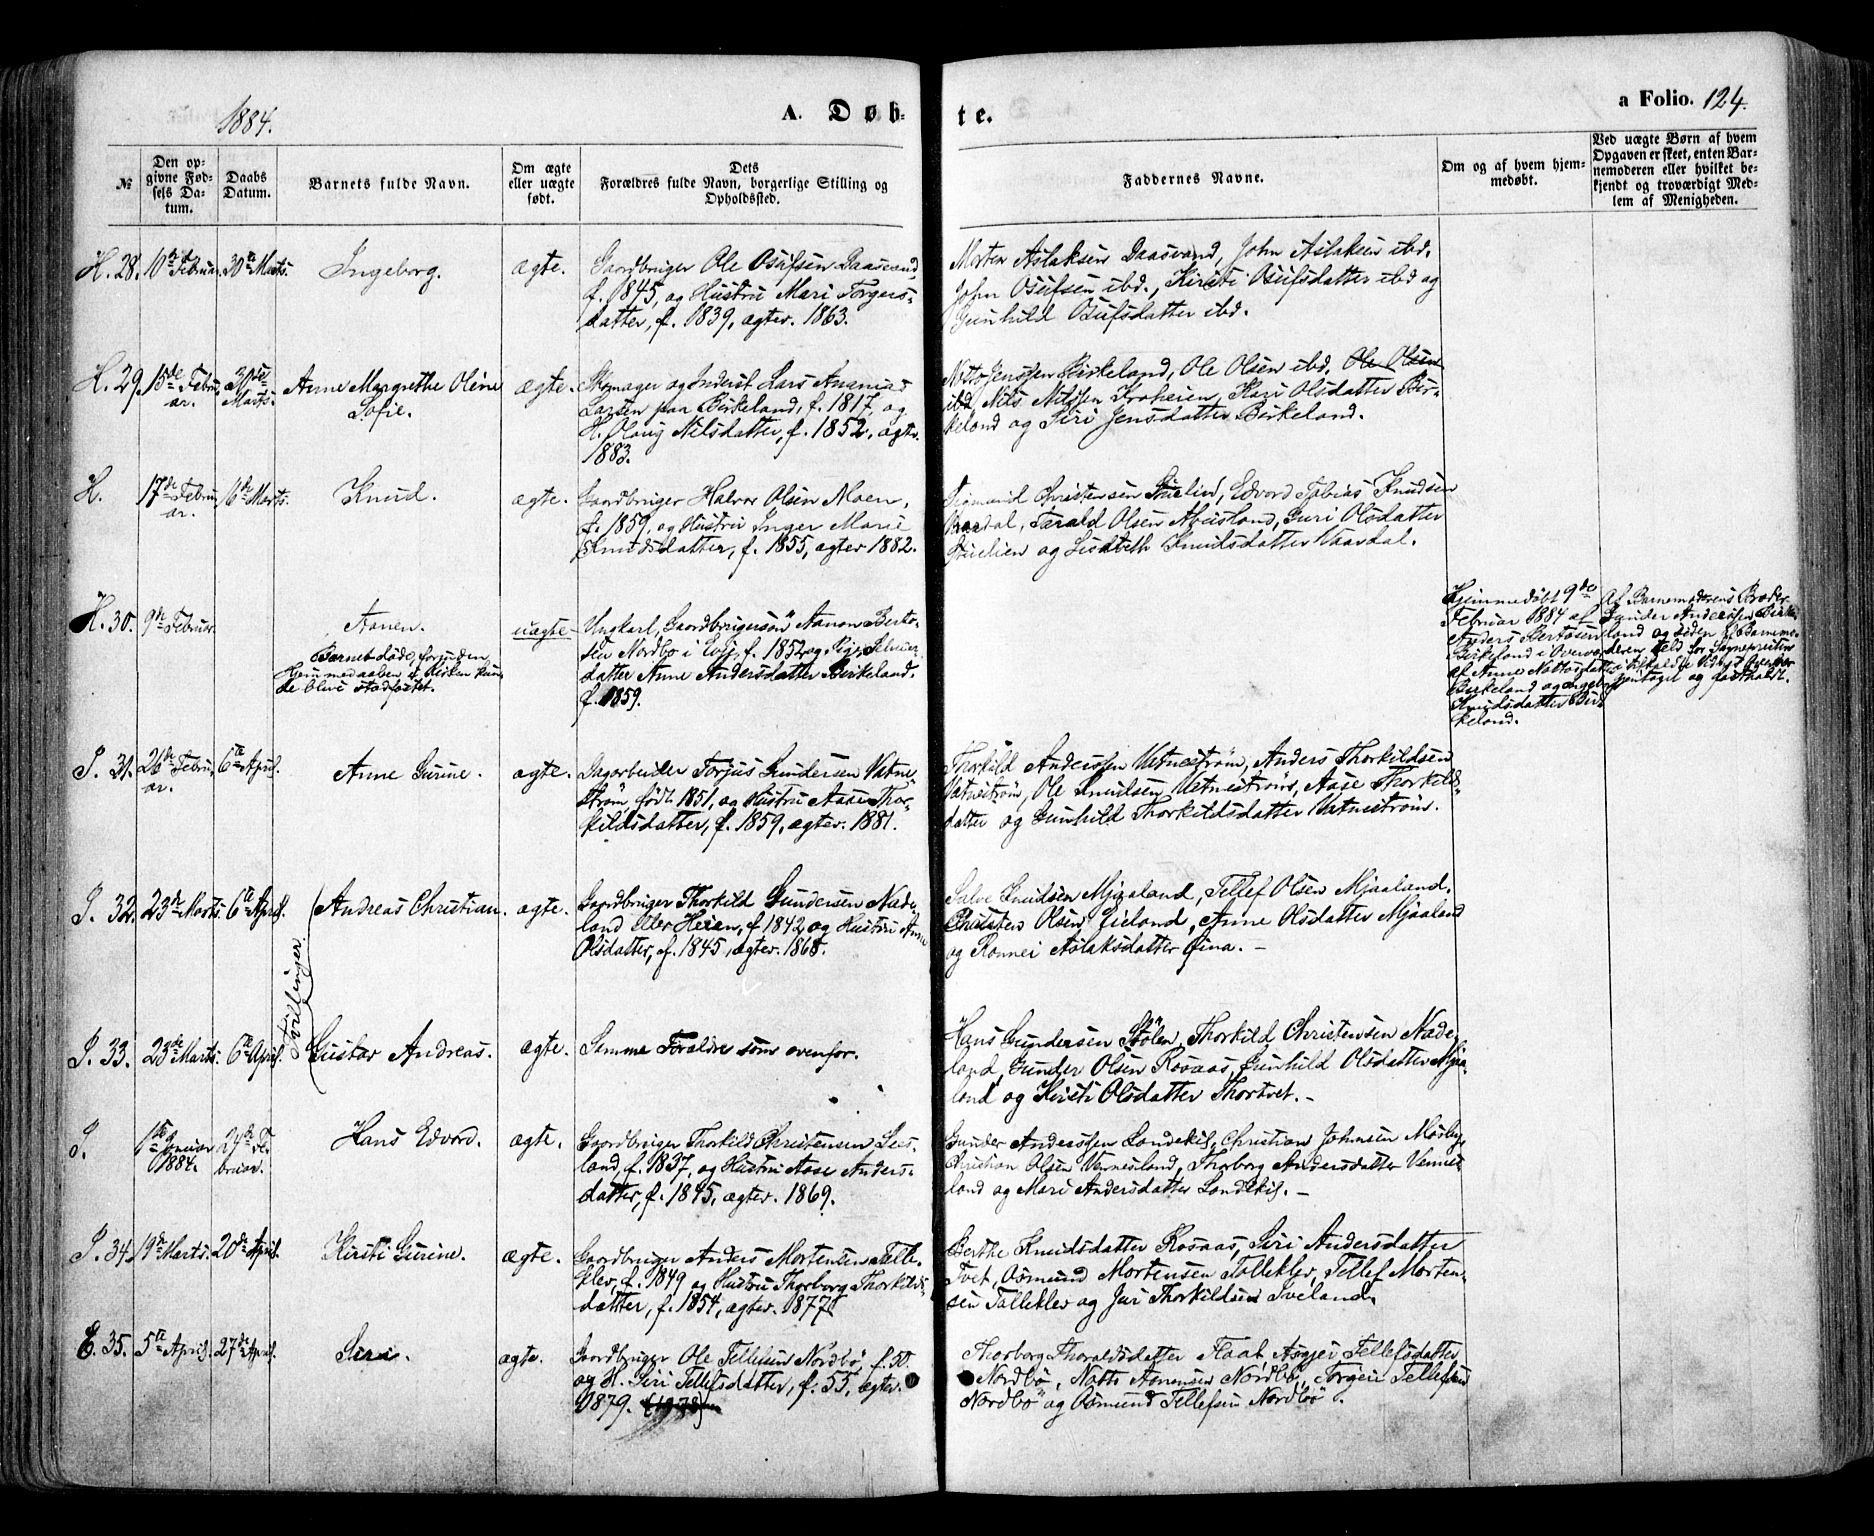 1884.
A. Døb-
te.
a Folio. 124.
№
Den op-
givne Fød-
sels Da-
tum.
Daabs
Datum.
Barnets fulde Navn.
Om ægte
eller uægte
født.
Dets
Forældres fulde Navn, borgerlige Stilling og
Opholdssted.
Faddernes Navne.
Om og af hvem hjem-
medøbt.
Ved uægte Børn af hvem
Opgaven er skeet, enten Bar-
nemoderen eller hvilket be-
kjendt og troværdigt Med-
lem af Menigheden.
H. 28. 10de Februar. 30te Marts. Ingeborg. ægte.
Gaardbruger Ole Osufsen Daasvand
f. 1845, og Hustru Mari Torgers-
datter, f. 1839, ægtev. 1863.
Morten Aslaksen Daasvand, John Aslaksen ibd.
John Osufsen ibd., Kirsti Osufsdatter ibd og
Gunhild Osufsdatter ibd.
H. 29. 15de Febru-
ar. 30te
Marts. Anne Margrethe Oline
Sofie. ægte.
Skomager og Inderst Lars Ananias
Larsen paa Birkeland, f. 1817, og
H. Olaug Nilsdatter, f. 1852, ægtv.
1883.
Notto Jenssen Birkeland, Ole Olsen ibd, Ole Olsen
ibd Nils Nilssen Kroheien, Kari Olsdatter Bir-
keland og Siri Jensdatter Birkeland.
H. 17de Febru-
ar. 16de Marts. Knud. ægte.
Gaardbruger Halvor Olsen Moen,
f. 1859, og Hustru Inger Marie
Knudsdatter, f. 1855, ægtev 1882.
Christensen Edvard Tobias Knudsen
Vaardal, Tarald Olsen Abusland, Guri Olsdatter
og Lisabeth Knudsdatter Vaardal.
H. 30. 9de Februar. Aanen. uægte
Barnet døde, forinden
Hjemmedaaben i Kirken kun-
de blive stadfæstet.
Ungkarl, Gaardbrugersøn Aanon Berto-
sen Nordbø i Evje, f. 1852 og Pige,
datter Anne Andersdatter Birkeland.
f. 1859.
Hjemmedøbt 9de
Februar 1884 af
Anders Bertosen
Birkeland i Overvær
af Anne Nottosdatter
Birkeland og Ingeborg
Knudsdatter Bir-
keland.
Af Barnemoderens Broder
Gunder Andersen Birke-
land og siden af Barnemo-
deren selv for Sognepresten
i tilkaldte Vidners Overvær
gjentaget og fastholdt.
I. 31. 26de Febru-
ar. 6te April. Anne Gurine. ægte.
Dagarbeider Torjus Gundersen Vatne-
strøm, født 1851, og Hustru Aase Thor-
kildsdatter, f. 1859, ægtev. 1881.
Thorkild Anderssen Vatnestrøm, Anders Thorkildsen
Vatnestrøm, Ole Knudsen Vatnestrøm, Aase Thorkilds-
datter og Gunhild Thorkildsdatter Vatnestrøm.
Tvillinger.
I. 32. 23de Marts. 6te April. Andreas Christian. ægte.
Gaardbruger Thorkild Gundersen Nade-
land eller Heien, f 1842 og Hustru Anne
Olsdatter, f. 1845, ægtev. 1868.
Salve Knudsen Mjaaland, Tellef Olsen Mjaaland.
Christen Olsen Eieland, Anne Olsdatter Mjaaland
og Ronnei Aslaksdatter Eina. –
I. 33. 23de Marts. 6te April. Gustav Andreas. ægte.
Samme Forældre som ovenfor.
Hans Gundersen Stølen, Thorkild Christensen Nade-
land, Gunder Olsen Rosaas, Gunhild Olsdatter Mjaa-
land og Kirsti Olsdatter Thortvet. –
I. 1ste Januar
1884. 24de Fe-
bruar. Hans Edvard. ægte.
Gaardbruger Thorkild Christensen
land, f. 1837, og Hustru Aase Anders-
datter, f. 1845, ægtev. 1869.
Gunder Anderssen Landekil, Christian Johnsen Mosby,
Christian Olsen Vennesland, Thorborg Andersdatter Vennes-
land og Mari Andersdatter Landekil. –
I. 34. 19de Marts. 20de April. Kirsti Gurine. ægte.
Gaardbruger Anders Mortensen Talle-
klev, f. 1849 og Hustru Thorborg Thorkilds-
datter, f. 1854, ægtev. 1877.
Berthe Knudsdatter Rosaas, Siri Andersdatter
Tvet, Osmund Mortensen Talleklev, Tellef Morten-
sen Talleklev og Juri Thorkildsen Tveland.
E. 35. 5te April. 27de April. Siri. ægte.
Gaardbruger Ole Tellefsen Nordbø, f. 50.
og H. Siri Tellefsdatter, f. 55, ægtev.
1879. (1878)
Thorborg Tharaldsdatter Flaat Asgjer Tellefsdatter
Nordbø, Notto Aanensen Nordbø, Torgeir Tellefsen
Nordbø og Osmund Tellefsen Nordbø.